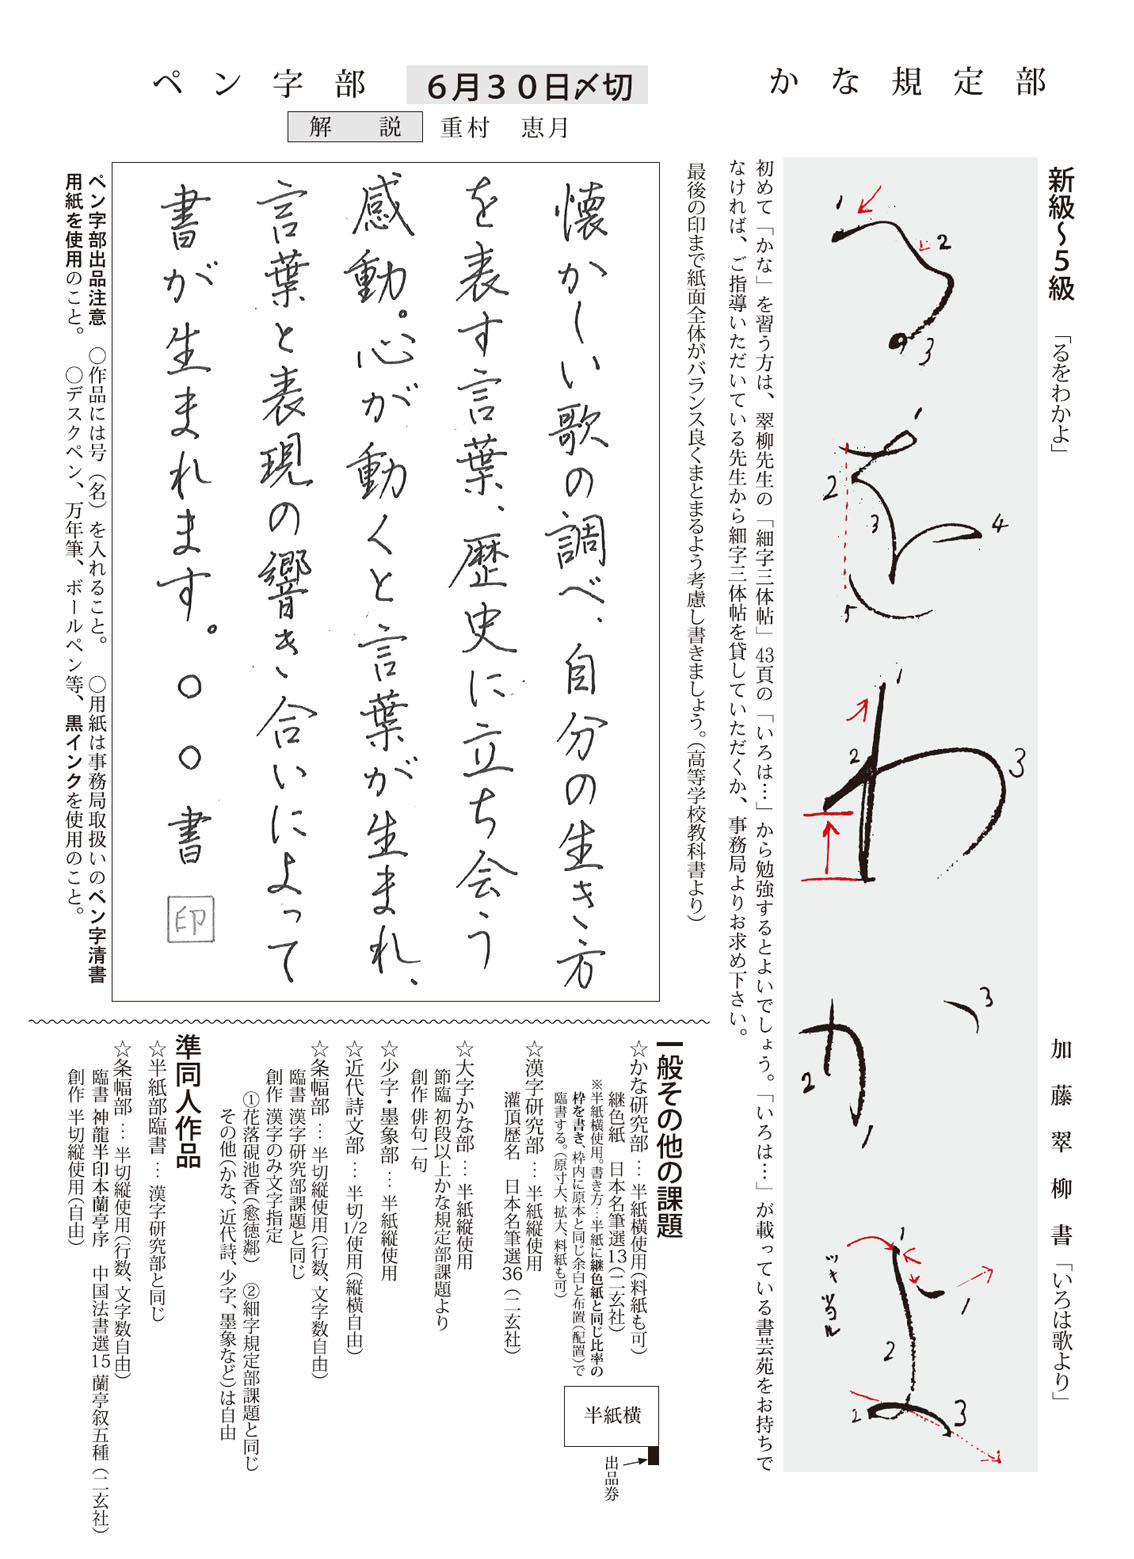 かな規定部
新級〜5級　「るをわかよ」
加藤翠柳書「いろは歌より」
1
2
3
1
2
3
4
5
1
2
3
1
2
3
1
2
2
3
ツキ当ル
初めて「かな」を習う方は、翠柳先生の「細字三体帖」43頁の「いろは…」から勉強するとよいでしょう。「いろは…」が載っている書芸苑をお持ちで
なければ、ご指導いただいている先生から細字三体帖を貸していただくか、事務局よりお求め下さい。
ペン字部
6月30日〆切
解説　重村　恵月
最後の印まで紙面全体がバランス良くまとまるよう考慮し書きましょう。(高等学校教科書より)
懐かしい歌の調べ、自分の生き方
を表す言葉、歴史に立ち会う
感動。心が動くと言葉が生まれ、
言葉と表現の響き合いによって
書が生まれます。○○書
印
ペン字部出品注意　○作品には号（名）を入れること。　○用紙は事務局取扱いのペン字清書
用紙を使用のこと。　○デスクペン、万年筆、ボールペン等、黒インクを使用のこと。
一般その他の課題
☆かな研究部…半紙横使用(料紙も可)
継色紙　日本名筆選13(二玄社)
※半紙横使用。書き方…半紙に継色紙と同じ比率の
枠を書き、枠内に原本と同じ余白と布置(配置)で
臨書する。(原寸大、拡大、料紙も可)
半紙横
出品券
☆漢字研究部…半紙縦使用
灌頂歴名　日本名筆選36（二玄社）
☆大字かな部…半紙縦使用
節臨 初段以上かな規定部課題より
創作 俳句一句
☆少字・墨象部…半紙縦使用
☆近代詩文部…半切1/2使用(縦横自由)
☆条幅部…半切縦使用(行数、文字数自由)
臨書 漢字研究部課題と同じ
創作 漢字のみ文字指定
①花落硯池香(愈徳鄰)　②細字規定部課題と同じ
その他(かな、近代詩、少字、墨象など)は自由
準同人作品
☆半紙部臨書…漢字研究部と同じ
☆条幅部…半切縦使用(行数、文字数自由)
臨書 神龍半印本蘭亭序　中国法書選15 蘭亭叙五種（二玄社）
創作 半切縦使用(自由)